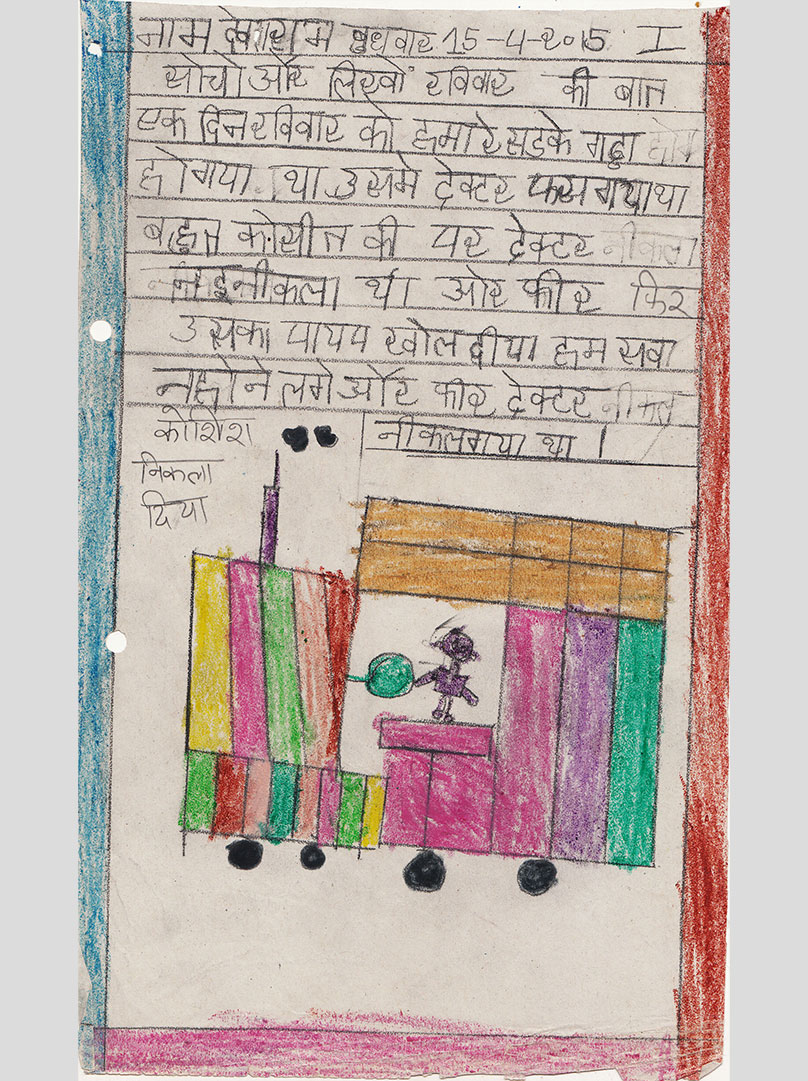 नाम देवाराम बुधवार 15-4-2015 I
सोचो और लिखो रविवार की बात
एक दिन रविवार को हमारे सडके गड्ढा
होगया था उसमे ट्रेक्टर फस गयाथा
बहुत कोसीत की पर ट्रेक्टर नीकला
नइनीकला था ओर फीर फिर
उसका पायप खोल दीया हम सवा
नहोने लगे और फीर ट्रेक्टर नीकल
नीकलगया था।
कोशिश
निकला
दिया